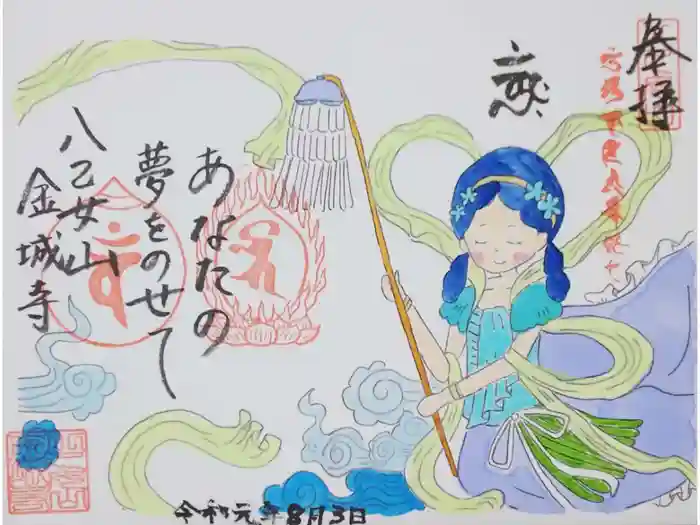 奉拝
あなたの
夢をのせて
八乙女山
金城寺
令和元年8月3日